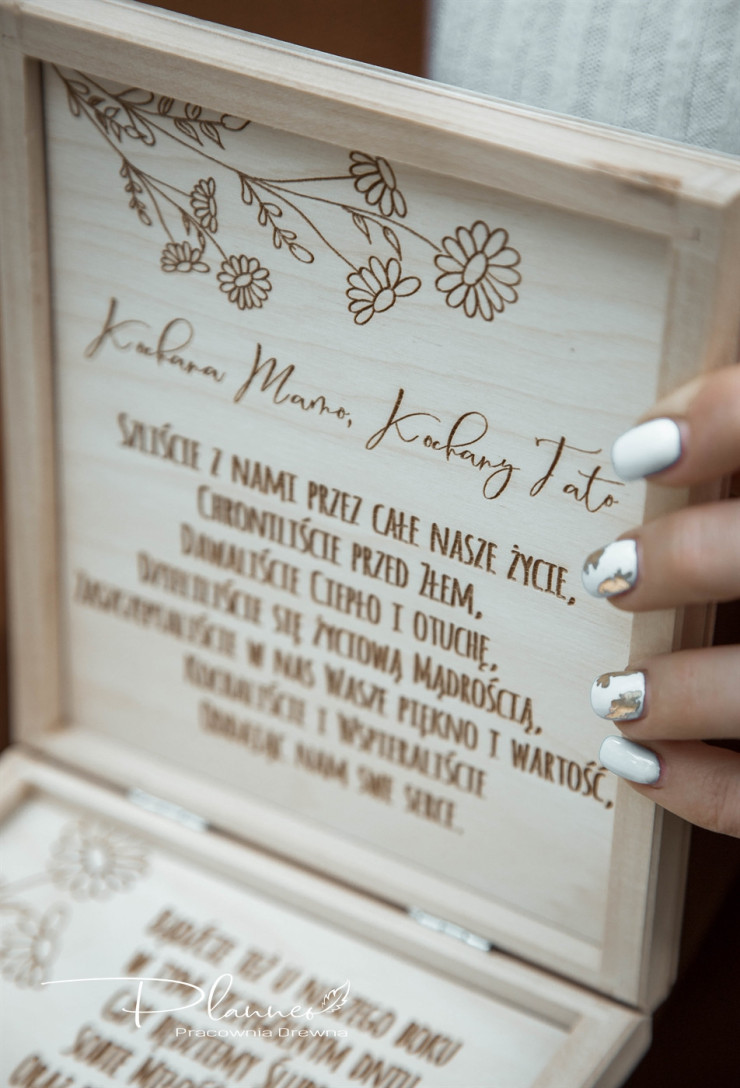 Kochana Mamo, Kochany Tato
SZLIŚCIE Z NAMI PRZEZ CAŁE NASZE ŻYCIE,
CHRONILIŚCIE PRZED ZŁEM,
DAWALIŚCIE CIEPŁO I OTUCHĘ,
DZIELILIŚCIE SIĘ ŻYCIOWĄ MĄDROŚCIĄ,
ZASZCZEPIALIŚCIE W NAS WASZE PIĘKNO I WARTOŚĆ,
KOCHALIŚCIE I WSPIERALIŚCIE
ODDAJĄC NAM SWE SERCE.
BĄDŹCIE TEŻ U NASZEGO BOKU
W DNIU
GDY
SOBIE
ORAZ
Planneo
Pracownia Drewna